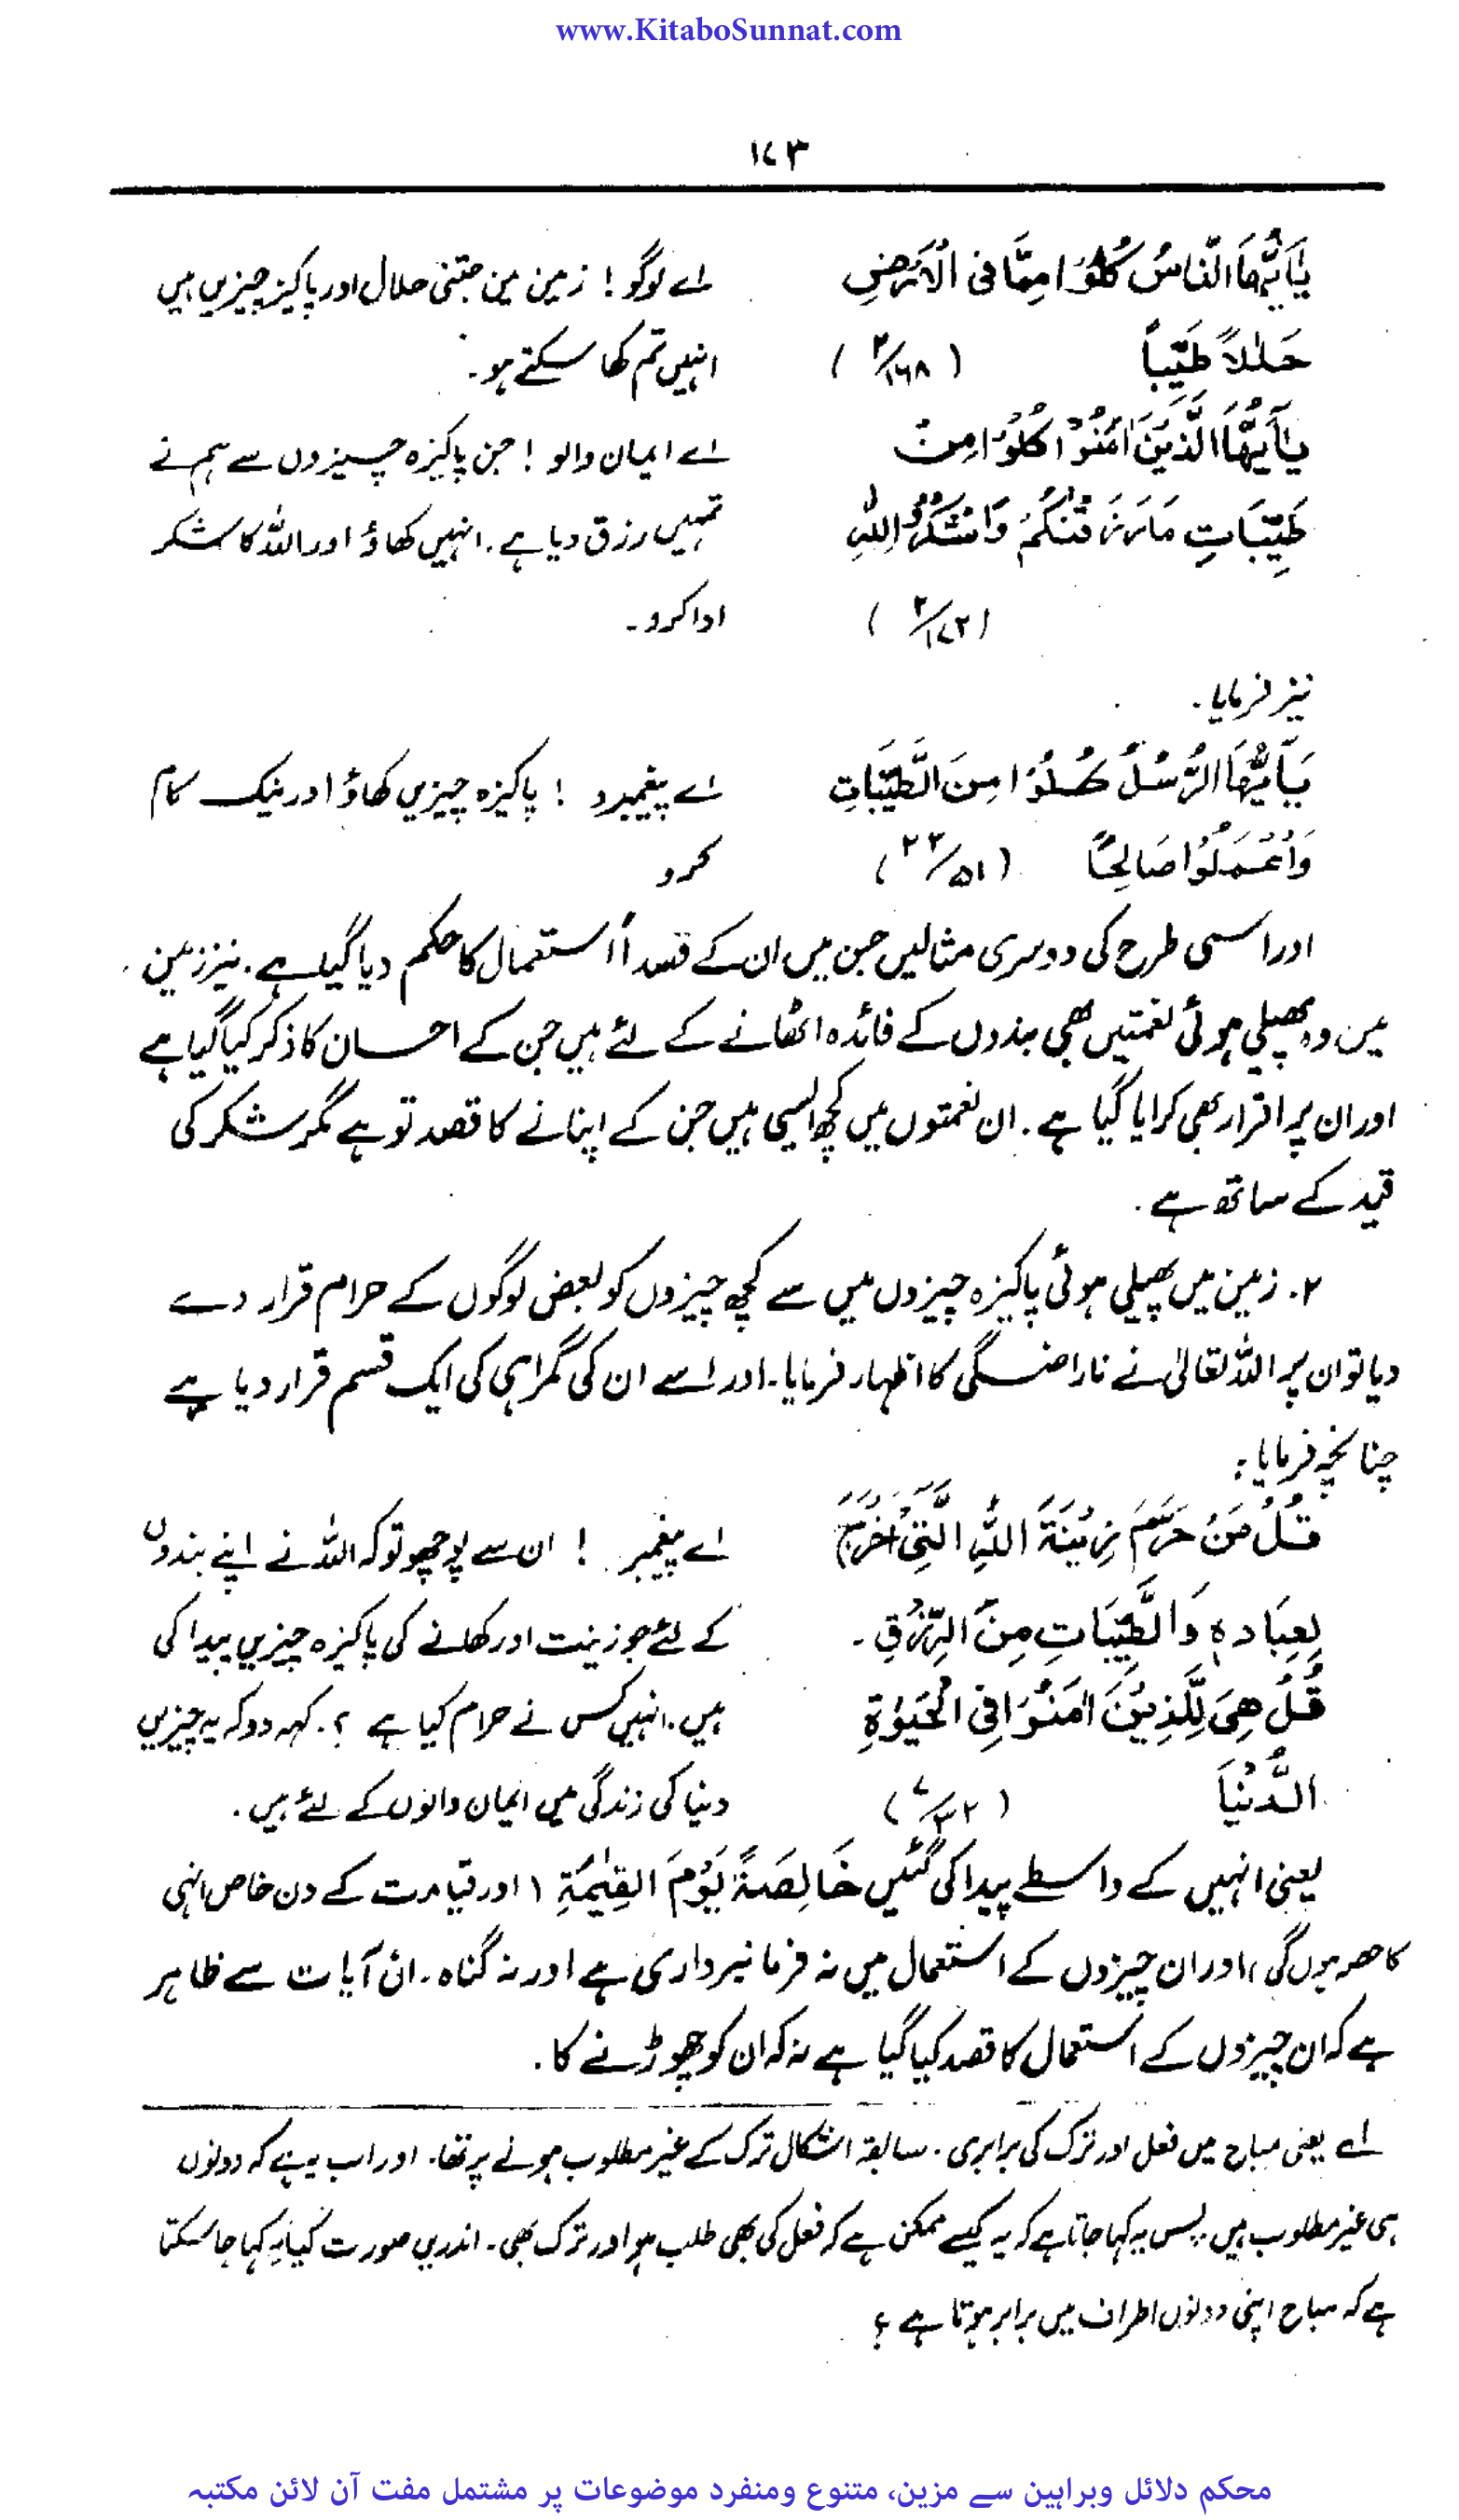 www.KitaboSunnat.com
۱۷۳
يٰٓاَيُّهَا النَّاسُ كُلُوْا مِمَّا فِى الْاَرْضِ
حَلٰلاً طَيِّباً (۲/۱۶۸)
اے لوگو! زمین میں جتنی حلال اور پاکیزہ چیزیں ہیں
انہیں تم کھا سکتے ہو۔
يٰٓاَيُّهَا الَّذِيْنَ اٰمَنُوْا كُلُوْا مِنْ
طَيِّبَاتِ مَا رَزَقْنٰكُمْ وَاشْكُرُوا لِلّٰهِ
(۲/۱۷۲)
اے ایمان والو! جن پاکیزہ چیزوں سے ہم نے
تمہیں رزق دیا ہے۔ انہیں کھاؤ اور اللہ کا شکر
ادا کرو۔
نیز فرمایا۔
يَآ اَيُّهَا الرُّسُلُ كُلُوْا مِنَ الطَّيِّبَاتِ
وَاعْمَلُوْا صَالِحًا (۲۳/۵۱)
اے پیغمبرو! پاکیزہ چیزیں کھاؤ اور نیک کام
کرو
اور اسی طرح کی دوسری مثالیں جن میں ان کے قصداً استعمال کا حکم دیا گیا ہے۔ نیز زمین
میں وہ پھیلی ہوئی نعمتیں بھی بندوں کے فائدہ اٹھانے کے لئے ہیں جن کے احسان کا ذکر کیا گیا ہے
اور ان پر اقرار بھی کرایا گیا ہے۔ ان نعمتوں میں کچھ ایسی ہیں جن کے اپنانے کا قصد تو ہے مگر شکر کی
قید کے ساتھ ہے۔
۲۔ زمین میں پھیلی ہوئی پاکیزہ چیزوں میں سے کچھ چیزوں کو بعض لوگوں کے حرام قرار دے
دیا تو ان پر اللہ تعالیٰ نے ناراضگی کا اظہار فرمایا۔ اور اسے ان کی گمراہی کی ایک قسم قرار دیا ہے
چنانچہ فرمایا:
قُلْ مَنْ حَرَّمَ زِيْنَةَ اللّٰهِ الَّتِيْ اَخْرَجَ
لِعِبَادِهٖ وَالطَّيِّبَاتِ مِنَ الرِّزْقِ۔
قُلْ هِىَ لِلَّذِيْنَ اٰمَنُوْا فِى الْحَيٰوةِ
الدُّنْيَا (۷/۳۲)
اے پیغمبر! ان سے پوچھو تو کہ اللہ نے اپنے بندوں
کے لئے جو زینت اور کھانے کی پاکیزہ چیزیں پیدا کی
ہیں۔ انہیں کس نے حرام کیا ہے؟۔ کہہ دو کہ یہ چیزیں
دنیا کی زندگی میں ایمان والوں کے لئے ہیں۔
یعنی انہیں کے واسطے پیدا کی گئیں خَالِصَةً يَوْمَ الْقِيٰمَةِ (اور قیامت کے دن خاص انہی
کا حصہ ہوں گی)، اور ان چیزوں کے استعمال میں نہ فرمانبرداری ہے اور نہ گناہ۔ ان آیات سے ظاہر
ہے کہ ان چیزوں کے استعمال کا قصد کیا گیا ہے نہ کہ ان کو چھوڑنے کا۔
لے یعنی مباح میں فعل اور ترک کی برابری۔ سابقہ اشکال ترک کے غیر مطلوب ہونے پر تھا۔ اور اب یہ ہے کہ دونوں
ہی غیر مطلوب ہیں پس یہ کہا جاتا ہے کہ یہ کیسے ممکن ہے کہ فعل کی بھی طلب ہو اور ترک بھی۔ اندریں صورت کیا یہ کہا جا سکتا
ہے کہ مباح اپنی دونوں اطراف میں برابر ہوتا ہے؟
محکم دلائل وبراہین سے مزین، متنوع ومنفرد موضوعات پر مشتمل مفت آن لائن مکتبہ